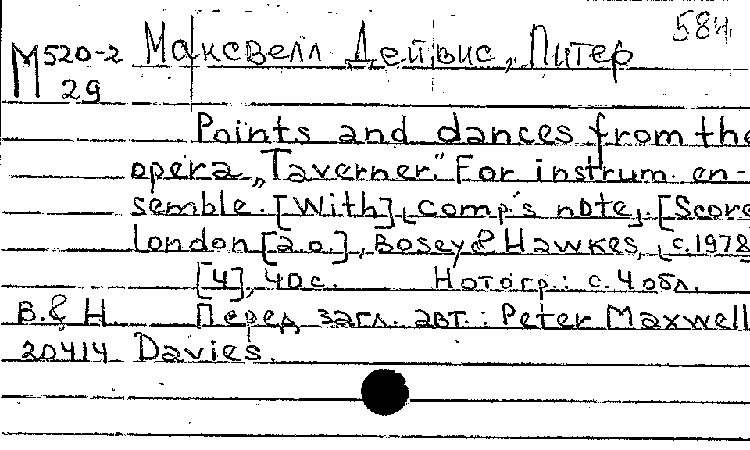 584
M 520-2 Максвелл Дейвис, Питер
29
Points and dances from the
opera „Taverner." For instrum. en-
semble. [With] comp's note. [Score
London [a.o.], Bosey & Hawkes, c.1978
[4], 40 c. Нотогр.: с. 4 обл.
B. & H. Перед загл. авт.: Peter Maxwell
20414 Davies.